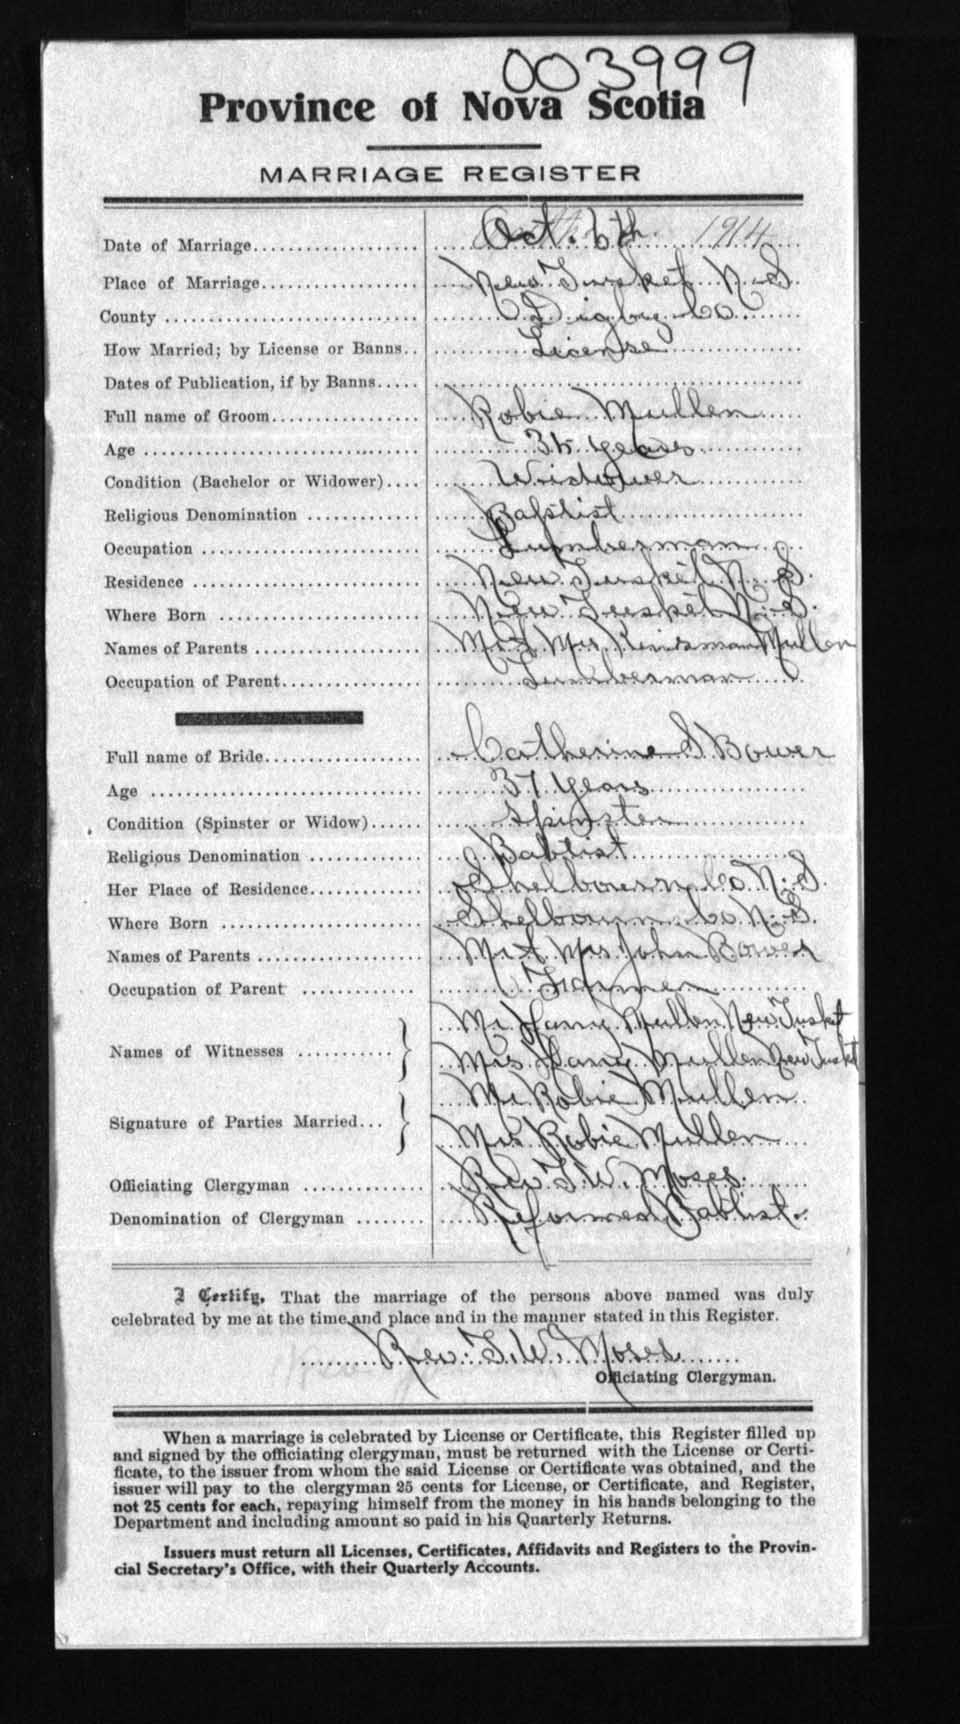 003999
Province of Nova Scotia
MARRIAGE REGISTER
Date of Marriage Oct. 6th. 1914
Place of Marriage New Tusket N.S.
County Digby Co
How Married; by License or Banns License
Dates of Publication, if by Banns
Full name of Groom Robie Mullen
Age years
Condition (Bachelor or Widower) Widower
Religious Denomination Baptist
Occupation Lumberman
Residence New Tusket N.S.
Where Born New Tusket N.S.
Names of Parents Mr & Mrs Kinsman Mullen
Occupation of Parent Lumberman
Full name of Bride Catherine S Bower
Age 37 years
Condition (Spinster or Widow) Spinster
Religious Denomination Babtist
Her Place of Residence Shelbourn Co N.S.
Where Born Shelbourn Co N.S.
Names of Parents Mr & Mrs John Bower
Occupation of Parent Farmer
Names of Witnesses Mr Mullen New Tusket
Mrs Mullen New Tusket
Signature of Parties Married Mr Robie Mullen
Mrs Robie Mullen
Officiating Clergyman Rev T.W. Moses
Denomination of Clergyman Reformed Babtist.
I Certify, That the marriage of the persons above named was duly
celebrated by me at the time and place and in the manner stated in this Register.
Rev. T.W. Moses
Officiating Clergyman.
When a marriage is celebrated by License or Certificate, this Register filled up
and signed by the officiating clergyman, must be returned with the License or Certi-
ficate, to the issuer from whom the said License or Certificate was obtained, and the
issuer will pay to the clergyman 25 cents for License, or Certificate, and Register,
not 25 cents for each, repaying himself from the money in his hands belonging to the
Department and including amount so paid in his Quarterly Returns.
Issuers must return all Licenses, Certificates, Affidavits and Registers to the Provin-
cial Secretary's Office, with their Quarterly Accounts.